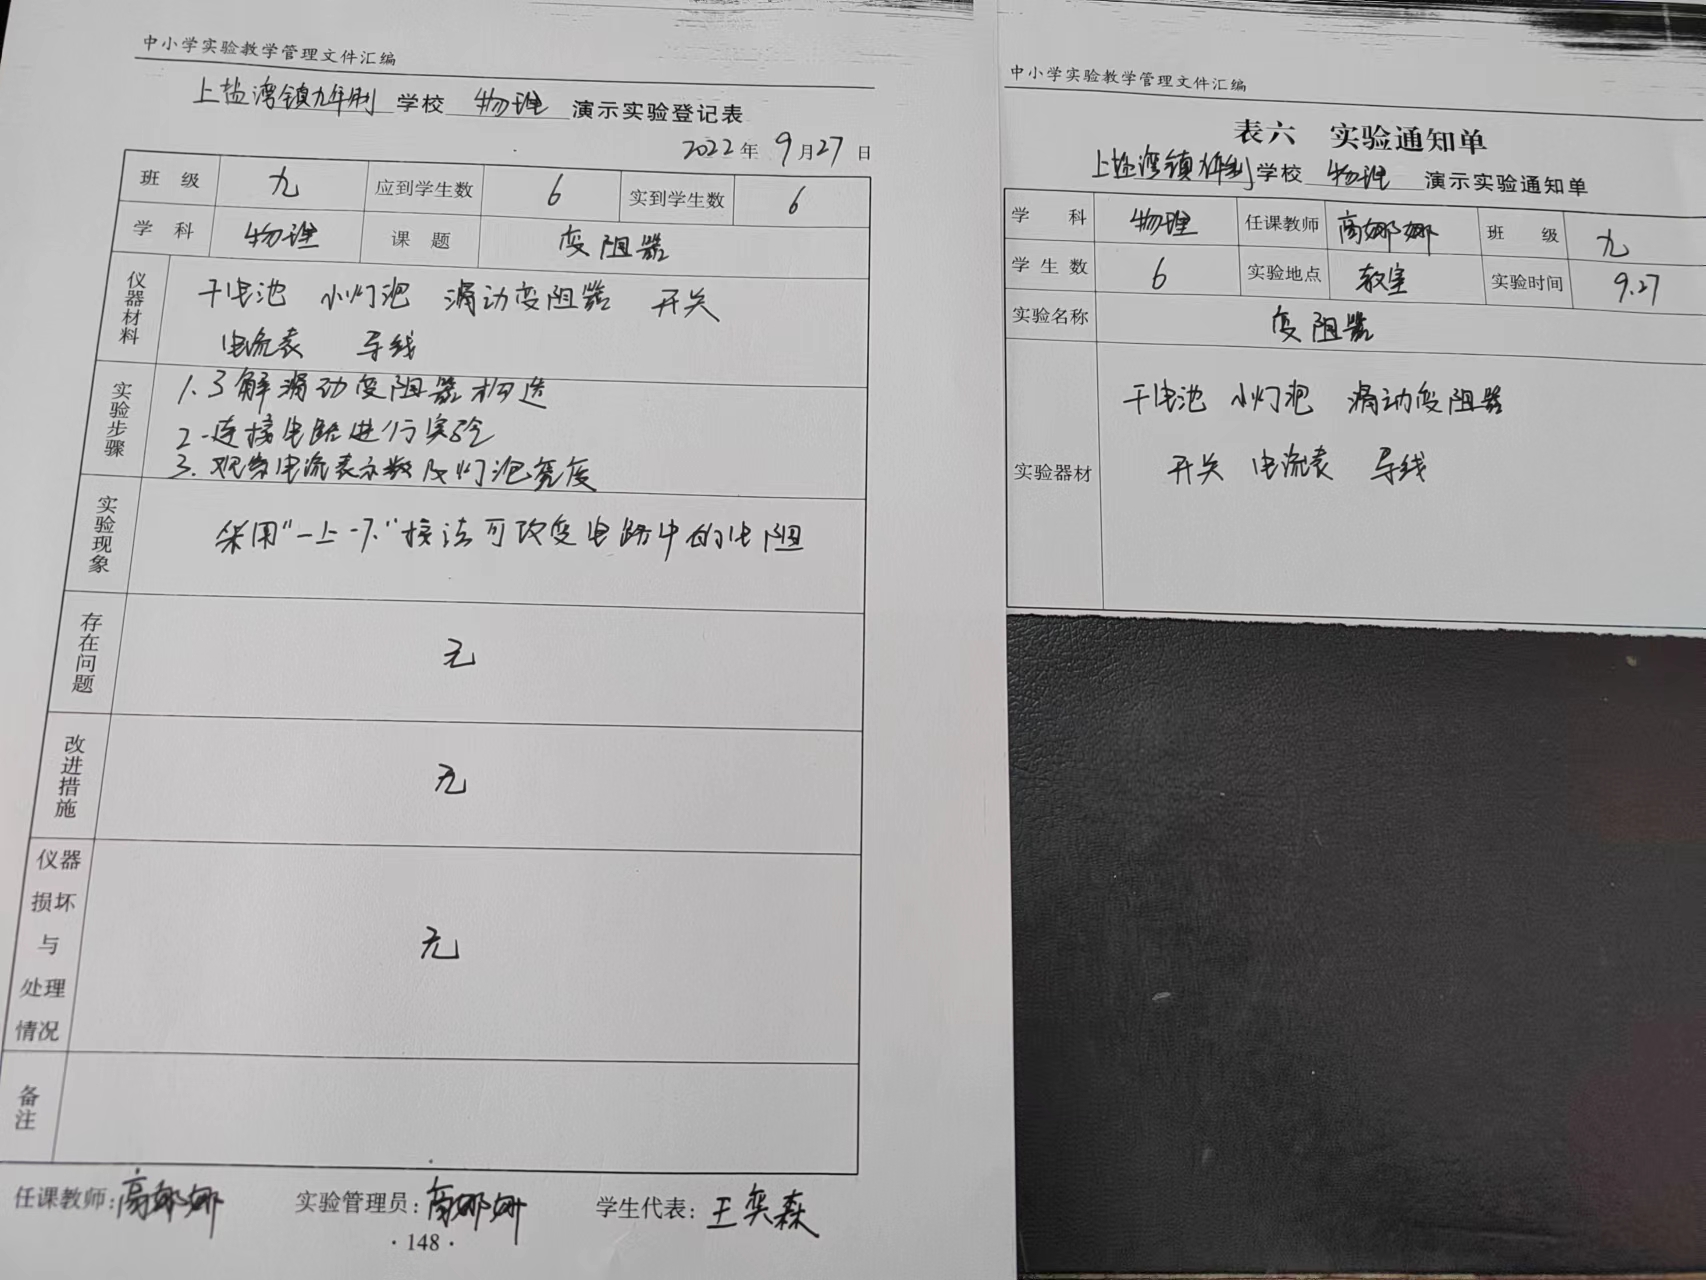 中小学实验教学管理文件汇编
上盐湾镇九年制 学校 物理 演示实验登记表
2022年 9月27日
班 级 九 应到学生数 6 实到学生数 6
学 科 物理 课 题 变阻器
仪器材料 干电池 小灯泡 滑动变阻器 开关
电流表 导线
实验步骤 1.了解滑动变阻器构造
2.连接电路进行实验
3.观察电流表示数及灯泡亮度
实验现象 采用“一上一下”接法可改变电路中的电阻
存在问题 无
改进措施 无
仪器损坏与处理情况 无
备注
任课教师：高娜娜 实验管理员：高娜娜 学生代表：王奕森
·148·
中小学实验教学管理文件汇编
表六 实验通知单
上盐湾镇九年制学校 物理 演示实验通知单
学 科 物理 任课教师 高娜娜 班 级 九
学生数 6 实验地点 教室 实验时间 9.27
实验名称 变阻器
实验器材 干电池 小灯泡 滑动变阻器
开关 电流表 导线